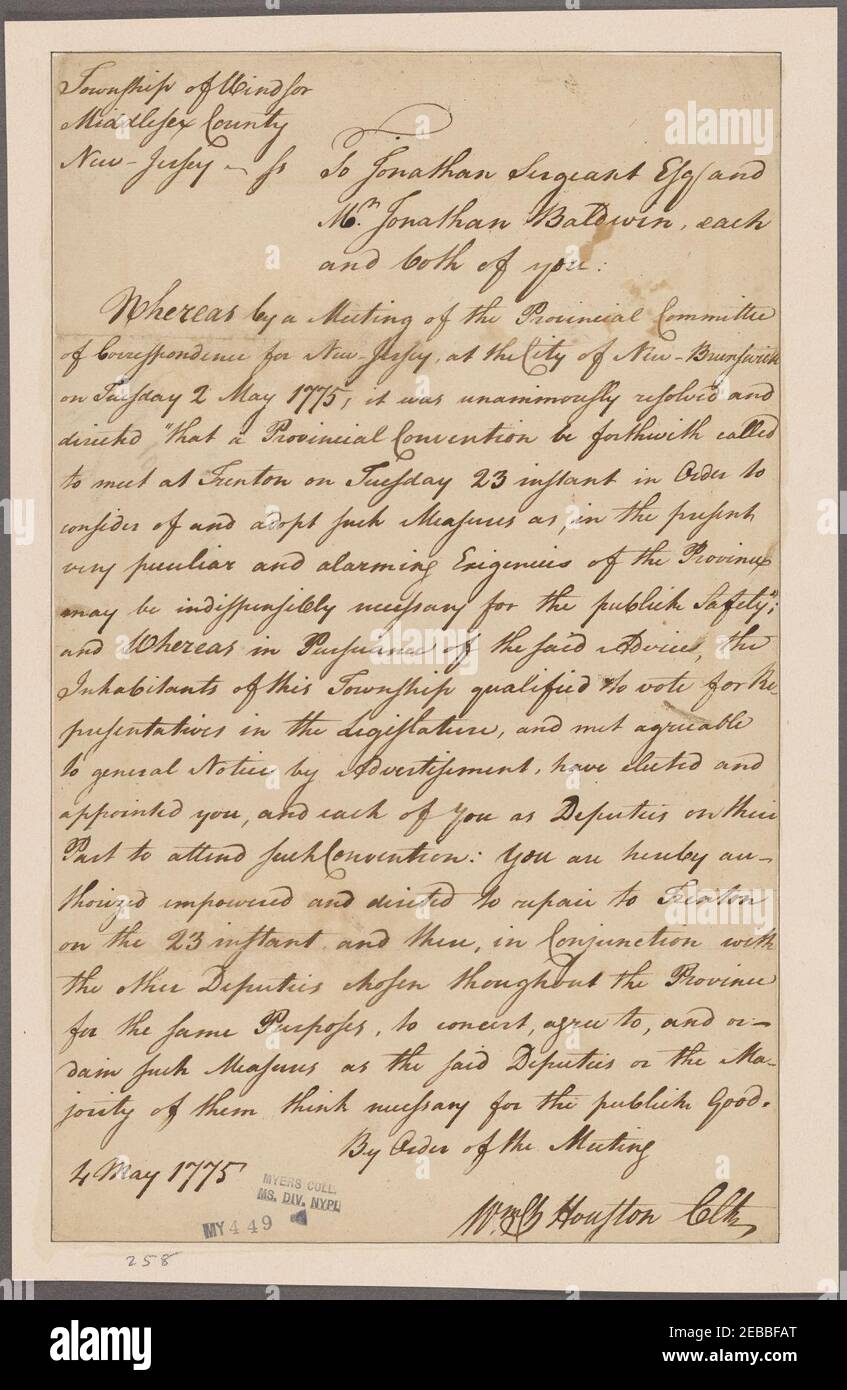 Township of Windsor
Middlesex County
New-Jersey ~ ss
To Jonathan Sergeant Esq and
Mr. Jonathan Baldwin, each
and both of you:
Whereas by a Meeting of the Provincial Committee
of Correspondence for New-Jersey, at the City of New-Brunswick
on Tuesday 2 May 1775, it was unanimously resolved and
directed "that a Provincial Convention be forthwith called
to meet at Trenton on Tuesday 23 instant in Order to
consider of and adopt such Measures as, in the present
very peculiar and alarming Exigencies of the Province
may be indispensibly necessary for the publick Safety";
and Whereas in Pursuance of the said Advices, the
Inhabitants of this Township qualified to vote for Re-
presentatives in the Legislature, and met agreable
to general Notice by Advertisement, have elected and
appointed you, and each of you as Deputies on their
Part to attend such Convention: You are hereby au-
thorized empowered and directed to repair to Trenton
on the 23 instant and there, in Conjunction with
the other Deputies chosen thoughout the Province
for the same Purposes, to concert, agree to, and or-
dain such Measures as the said Deputies or the Ma-
jority of them think necessary for the publick Good.
By Order of the Meeting
4 May 1775
Wm Ch Houston Clk
MYERS COLL.
MS. DIV. NYPL
MY 449
258
alamy
Image ID: 2EBBFAT
www.alamy.com